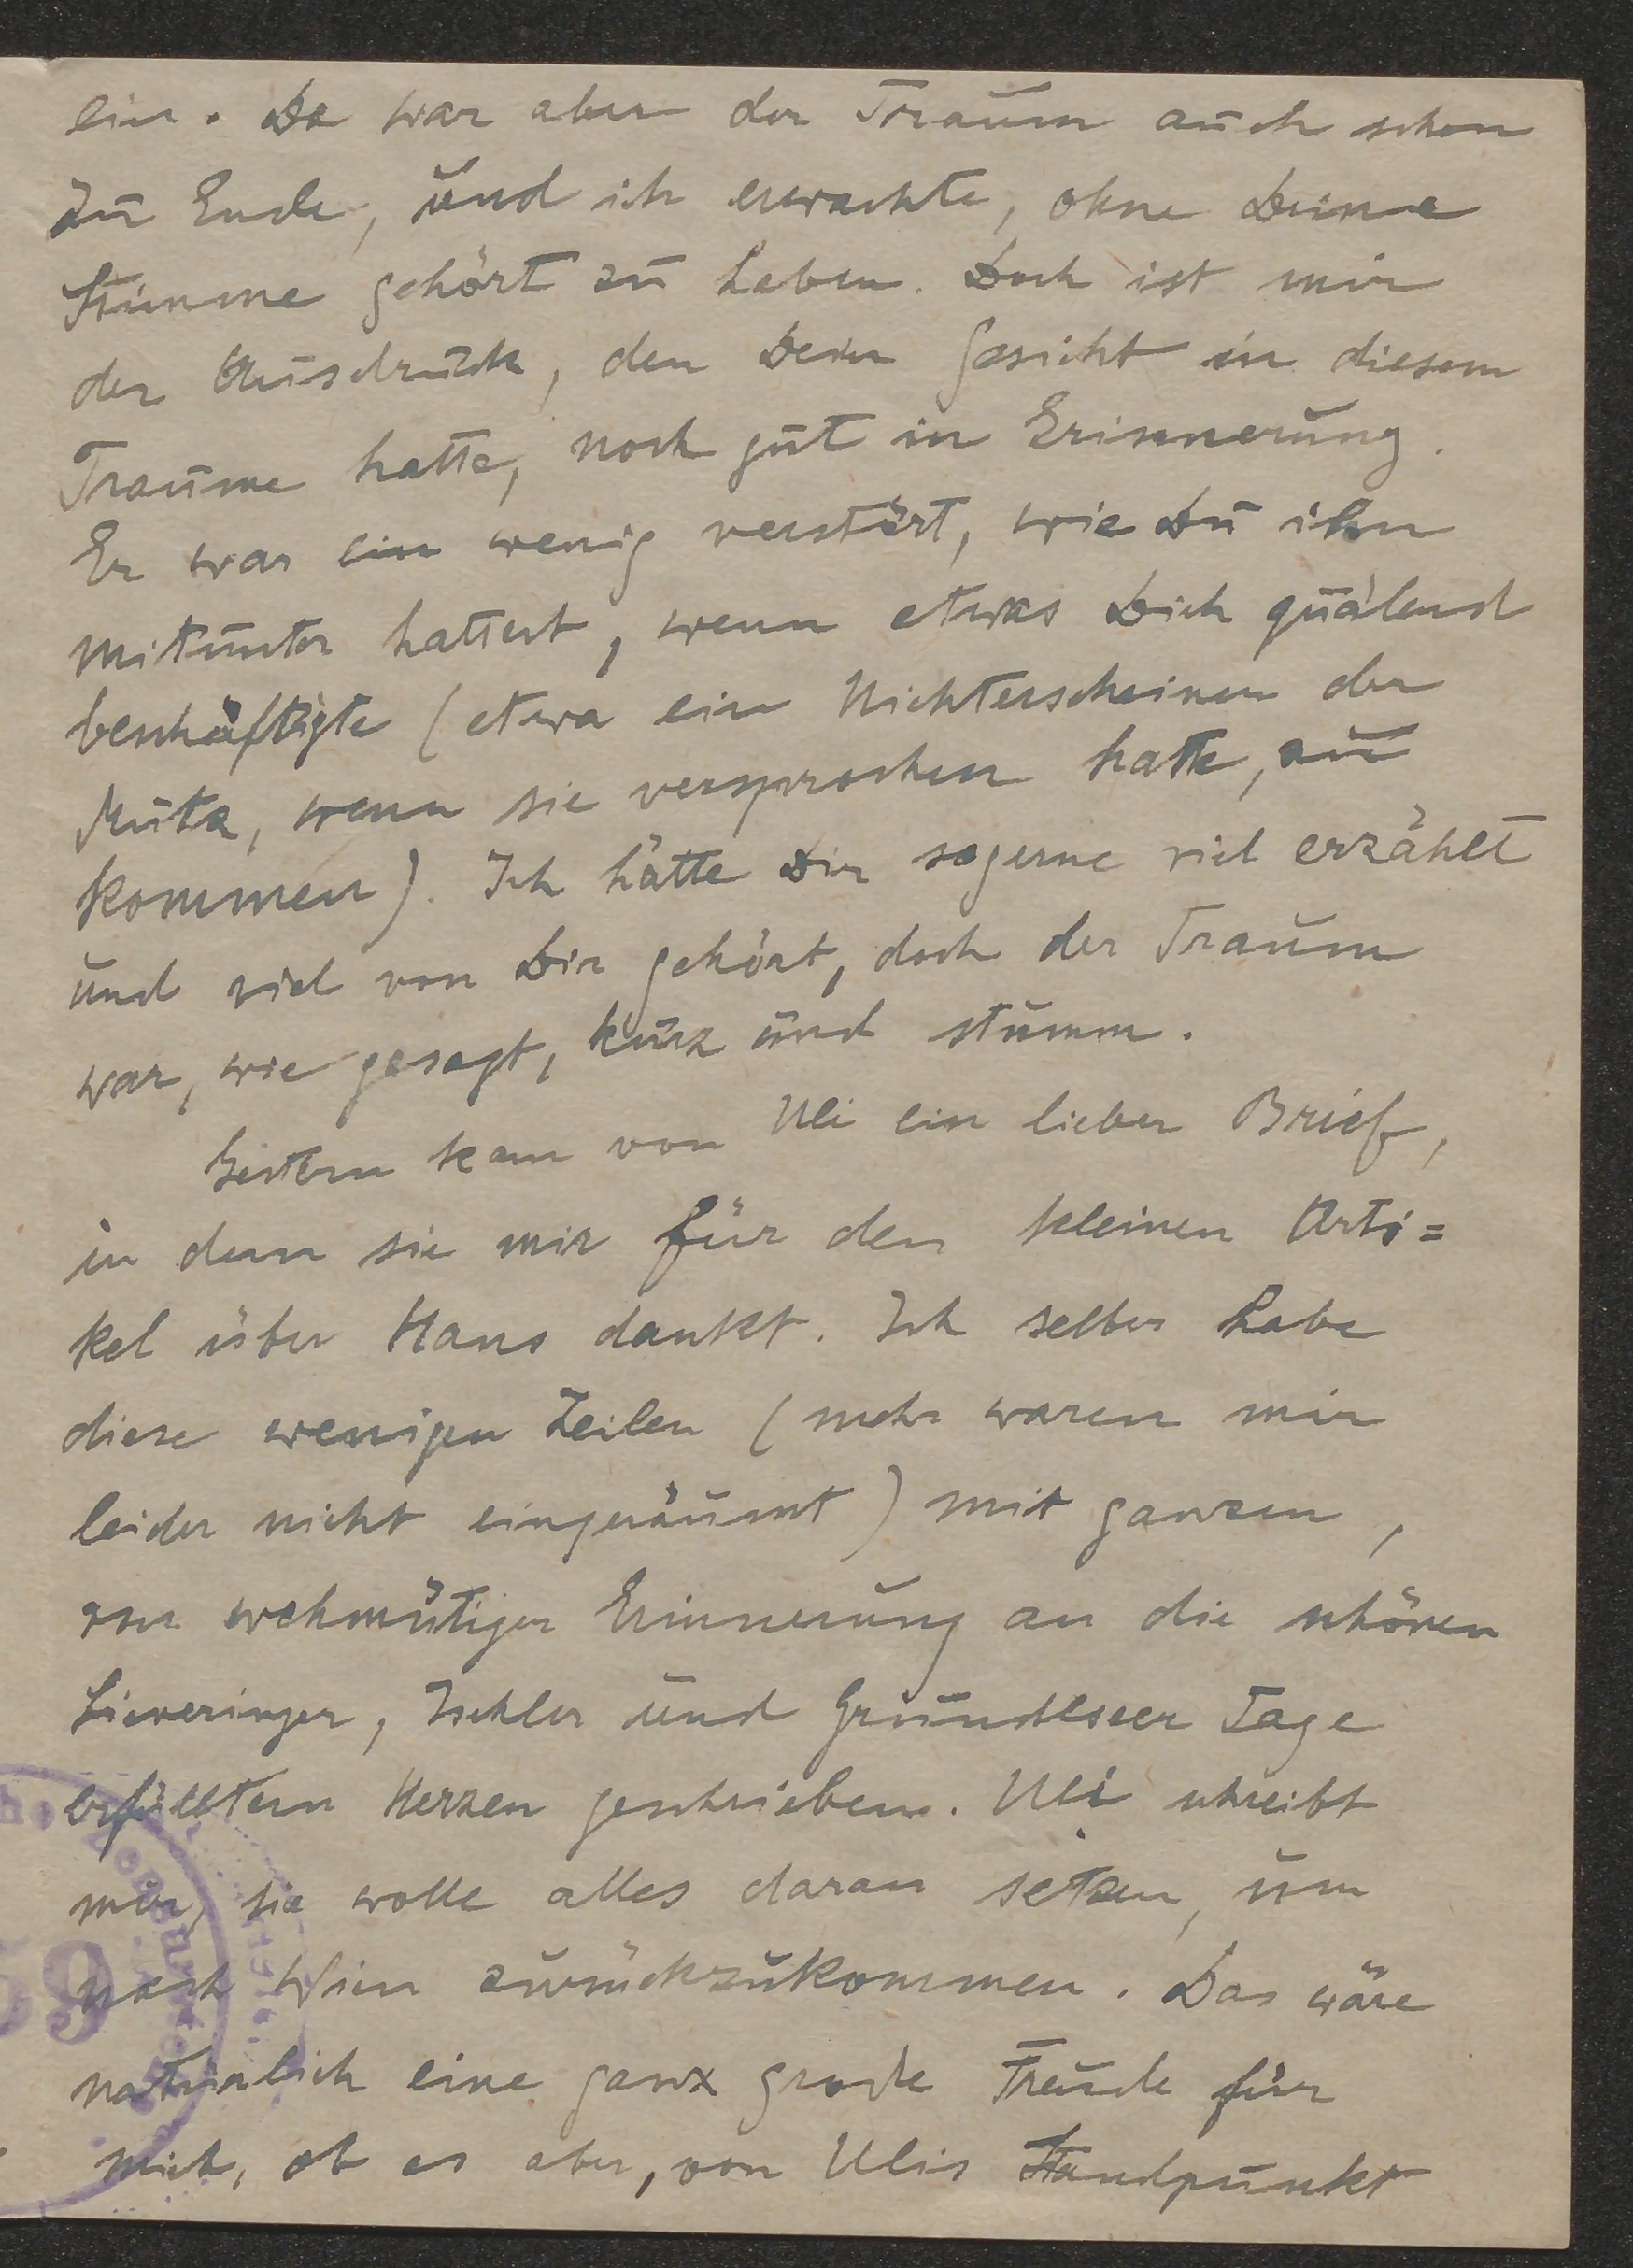 ein. Da war aber der Traum auch schon
zu Ende, und ich erwachte, ohne Deine
Stimme gehört zu haben. Doch ist mir
der Ausdruck, den Dein Gesicht in diesem
Traume hatte, noch gut in Erinnerung.
Er war ein wenig verstört, wie Du ihn
mitunter hattest, wenn etwas Dich quälend
beschäftigte (etwa ein Nichterscheinen der
Mutz, wenn sie versprochen hatte, zu
kommen). Ich hätte Dir sogerne viel erzählt
und viel von Dir gehört, doch der Traum
war, wie gesagt, kurz und stumm.
Gestern kam von Uli ein lieber Brief,
in dem sie mir für den kleinen Arti=
kel über Hans dankt. Ich selber habe
diese wenigen Zeilen (mehr waren mir
leider nicht eingeräumt) mit ganzem,
von wehmütiger Erinnerung an die schönen
Sieveringer, Ischler und Grundlseer Tage
erfülltem Herzen geschrieben. Uli schreibt
mir, sie wolle alles daran setzen, um
nach Wien zurückzukommen. Das wäre
natürlich eine ganz große Freude für
mich, ob es aber, von Ulis Standpunkt
59